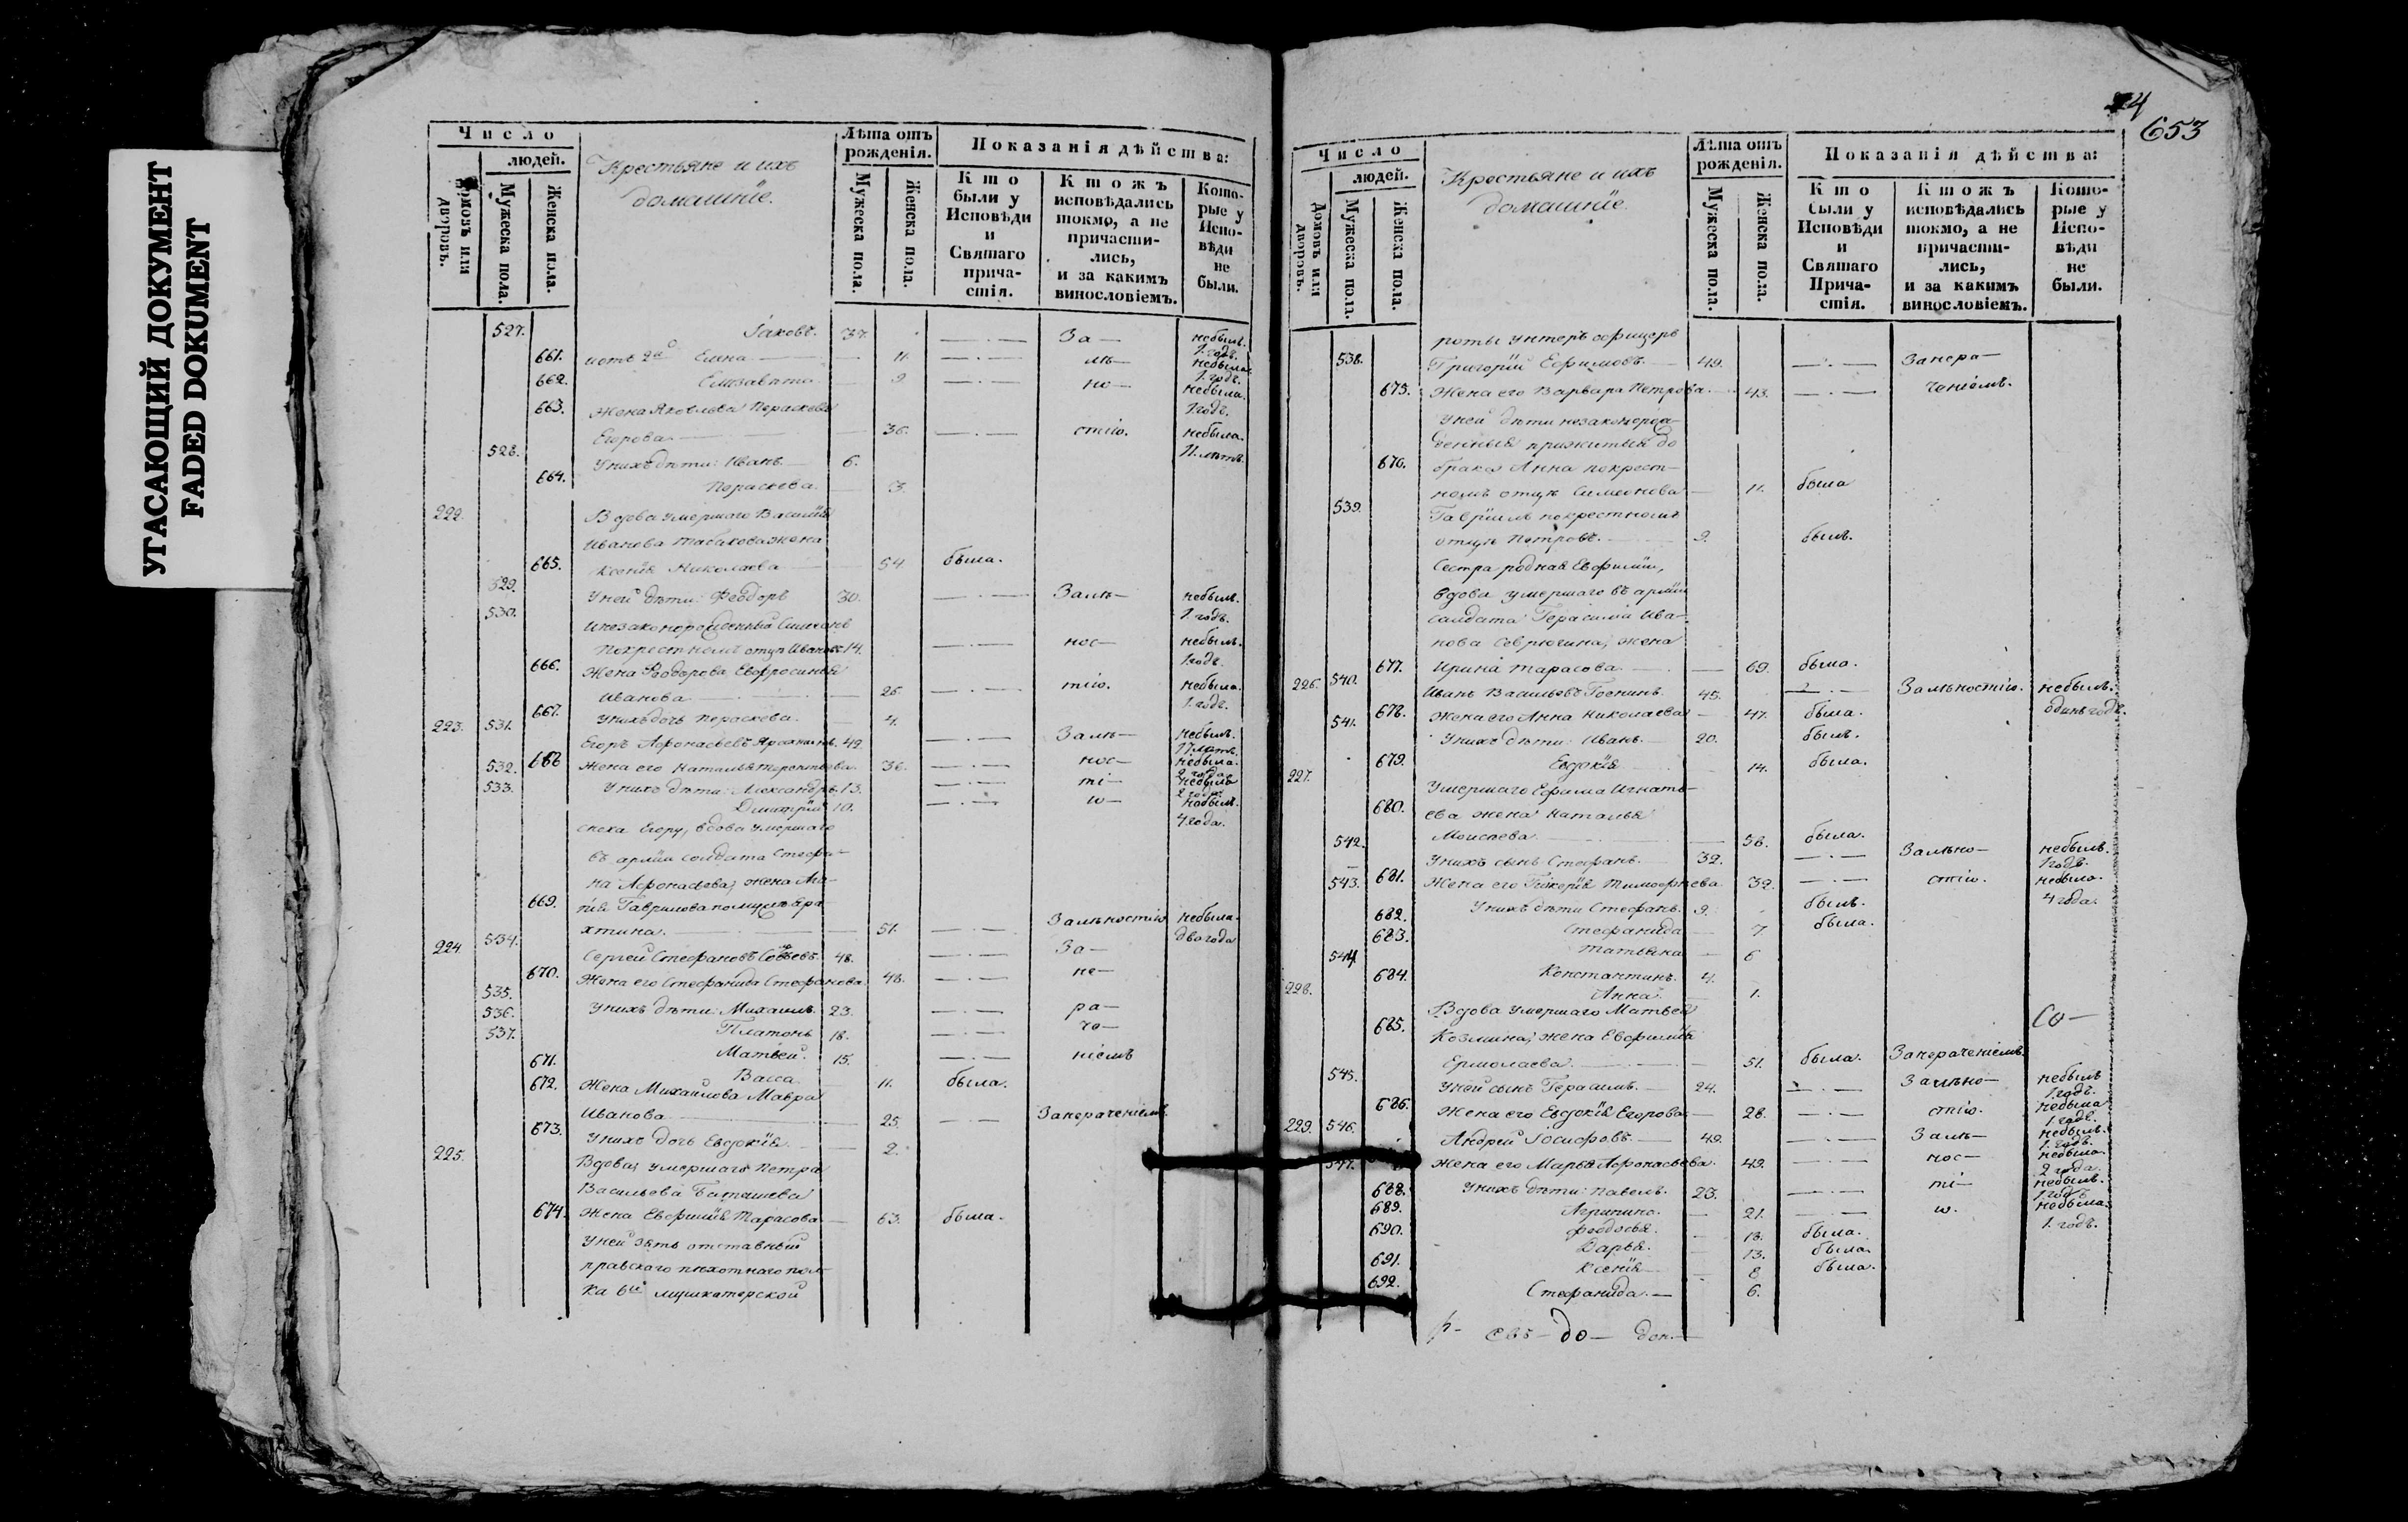 УГАСАЮЩИЙ ДОКУМЕНТ
FADED DOKUMENT
Число
людей.
домовъ или дворовъ.
Мужеска пола.
Женска пола.
Крестьяне и ихъ
домашніе.
Лѣта отъ
рожденія.
Мужеска пола.
Женска пола.
Показанія дѣйства:
Кто
были у
Исповѣди
и
Святаго
прича-
стія.
Ктожъ
исповѣдались
токмо, а не
причасти-
лись,
и за какимъ
винословіемъ.
Кото-
рые у
Испо-
вѣди
не
были.
527. Іаковъ. 37. За— небылъ. 1. годъ.
661. Елена 11. лѣ— небыла 1. годъ.
662. Елизавета 9. но— небыла. 1 годъ.
663. Жена Яковлева Пераскева
Егорова. 36. стію. небыла. 11. лѣтъ.
528. У нихъ дѣти: Иванъ 6.
664. Пераскева 3.
222. Вдова умершаго Василія
Иванова жена
665. Ксенія Николаева 54. была.
529. У ней дѣти: Феодоръ 30. Залѣ— небылъ. 1. годъ.
530. и незаконорожденный Симеонъ
по крестномъ отцѣ Ивановъ 14. нос— небылъ. 1 годъ.
666. Жена Ѳеодорова Евфросинья
Иванова 25. тію. небыла. 1. годъ.
667. У нихъ дочь Пераскева. 4.
223. 531. Егоръ Афонасьевъ 49. Залѣ— небылъ. 17 лѣтъ.
668 Жена его Наталья Терентьева. 36. нос— небыла. 2 года
532. У нихъ дѣти: Александръ 13. ті— небылъ 2 года.
533. Димитрій 10. ю— небылъ. 4 года.
снеха Егору, вдова умершаго
въ арміи солдата Стефа-
на Афонасьева, жена
669. Гаврилова по мужѣ Яра-
хтина. 51. Залѣностію небыла. два года
224. 534. Сергей Стефановъ 48. За—
670. Жена его Стефанида Стефанова 48. не—
535. У нихъ дѣти: Михаилъ. 23. ра—
536. Платонъ 18. че—
537. Матвей. 15. ніемъ
671. Васса. 11. была.
672. Жена Михайлова Мавра
Иванова 25. Занераченіемъ.
673. У нихъ дочь Евдокія 2.
225. Вдова, умершаго Петра
Васильева
674. Жена Евфимія Тарасова 63. была.
У ней зять отставный
пѣхотнаго пол-
ка 6й мушкатерской
4
653
Число
людей.
домовъ или дворовъ.
Мужеска пола.
Женска пола.
Крестьяне и ихъ
домашніе.
Лѣта отъ
рожденія.
Мужеска пола.
Женска пола.
Показанія дѣйства:
Кто
были у
Исповѣди
и
Святаго
Прича-
стія.
Ктожъ
исповѣдались
токмо, а не
причасти-
лись,
и за какимъ
винословіемъ.
Кото-
рые у
Испо-
вѣди
не
были.
роты унтеръ офицеръ
538. Григорій Ефимовъ. 49. Занера—
675. Жена его Варвара Петрова. 43. ченіемъ.
У ней дѣти незаконорож-
денныя прижитыя до
676. брака Анна по крест-
номъ отцѣ Симеонова 11. была
539. Гавріилъ по крестномъ
отцѣ Петровъ. 9. былъ.
Сестра родная Евфиміи,
вдова умершаго въ арміи
солдата Герасима Ива-
нова Севрюгина, жена
677. Ирина Тарасова 69. была.
226. 540. Иванъ Васильевъ 45. Залѣностію. небылъ. одинъ годъ.
678. Жена его Анна Николаева 47. была.
541. У нихъ дѣти: Иванъ. 20. былъ.
679. Евдокія 14. была.
227. Умершаго Ефима Игнать-
680. ева жена Наталья
Моисеева. 58. была.
542. У нихъ сынъ Стефанъ. 32. Залѣно— небылъ. 1 годъ.
681. Жена его Гликерія Тимофеева 32. стію. небыла. 4 года.
543. У нихъ дѣти Стефанъ. 9. былъ.
682. Стефанида 7. была.
683. Татьяна 6
544 Константинъ. 4.
684. Анна. 1.
228. Вдова умершаго Матвея
685. Козмина, жена Евфимія
Ермолаева. 51. была. Занераченіемъ. Со—
545. У ней сынъ Герасимъ. 24. Залѣно— небылъ 1. годъ.
686. Жена его Евдокія Егорова 28. стію. небыла 1. годъ.
229. 546. Андрей Іосифовъ. 49. Залѣ— небылъ. 1. годъ.
Жена его Марья Афонасьева. 49. нос— небыла. 2 года.
547. У нихъ дѣти: Павелъ. 23. ті— небылъ. 1 годъ
688. Агрипина. 21. ю. небыла. 1. годъ.
689. Феодосья. 18. была.
690. Дарья. 13. была.
691. Ксенія 8 была.
692. Стефанида. 6.